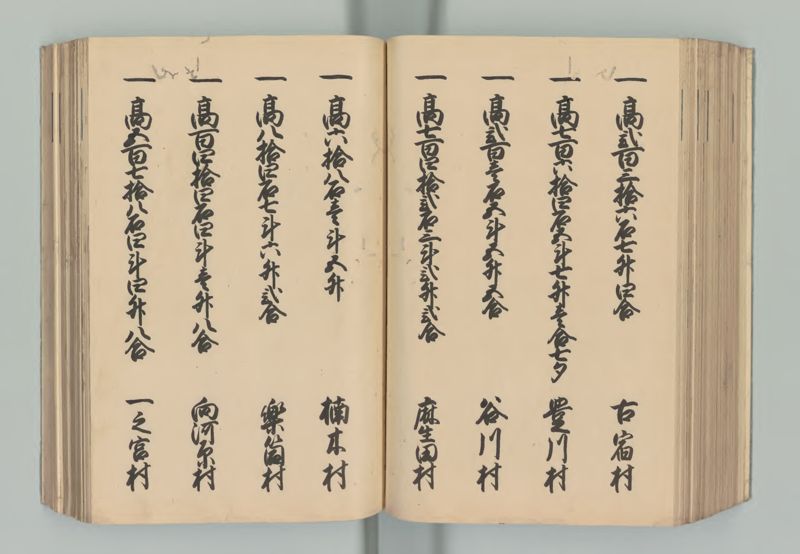 一 高弐百三拾六石七升四合 古宿村
一 高七百六拾四石五斗七升壱合七夕 豊川村
一 高弐百壱石五斗五升五合 谷川村
一 高七百四拾弐石三斗弐升弐合 麻生田村
一 高六拾八石壱斗五升 楠木村
一 高八拾四石七斗六升弐合 楽筒村
一 高百四拾四石四斗壱升八合 向河原村
一 高五百七拾八石四斗四升八合 一之宮村